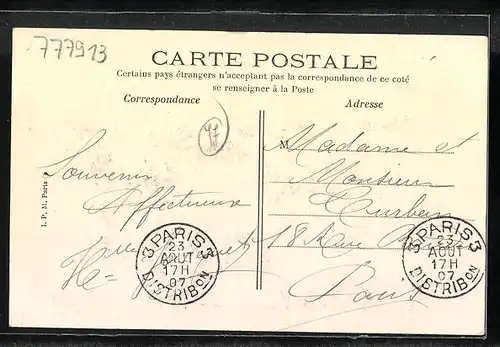 777913
CARTE POSTALE
Certains pays étrangers n'acceptant pas la correspondance de ce coté
se renseigner à la Poste
Correspondance
Adresse
97
Souvenir
Affectueux
H
M Madame et
Monsieur
18 Rue
Paris
I. P. M. Paris
3 PARIS 3
23
AOUT
17H
07
DISTRIBON
3 PARIS 3
23
AOUT
17H
07
DISTRIBON